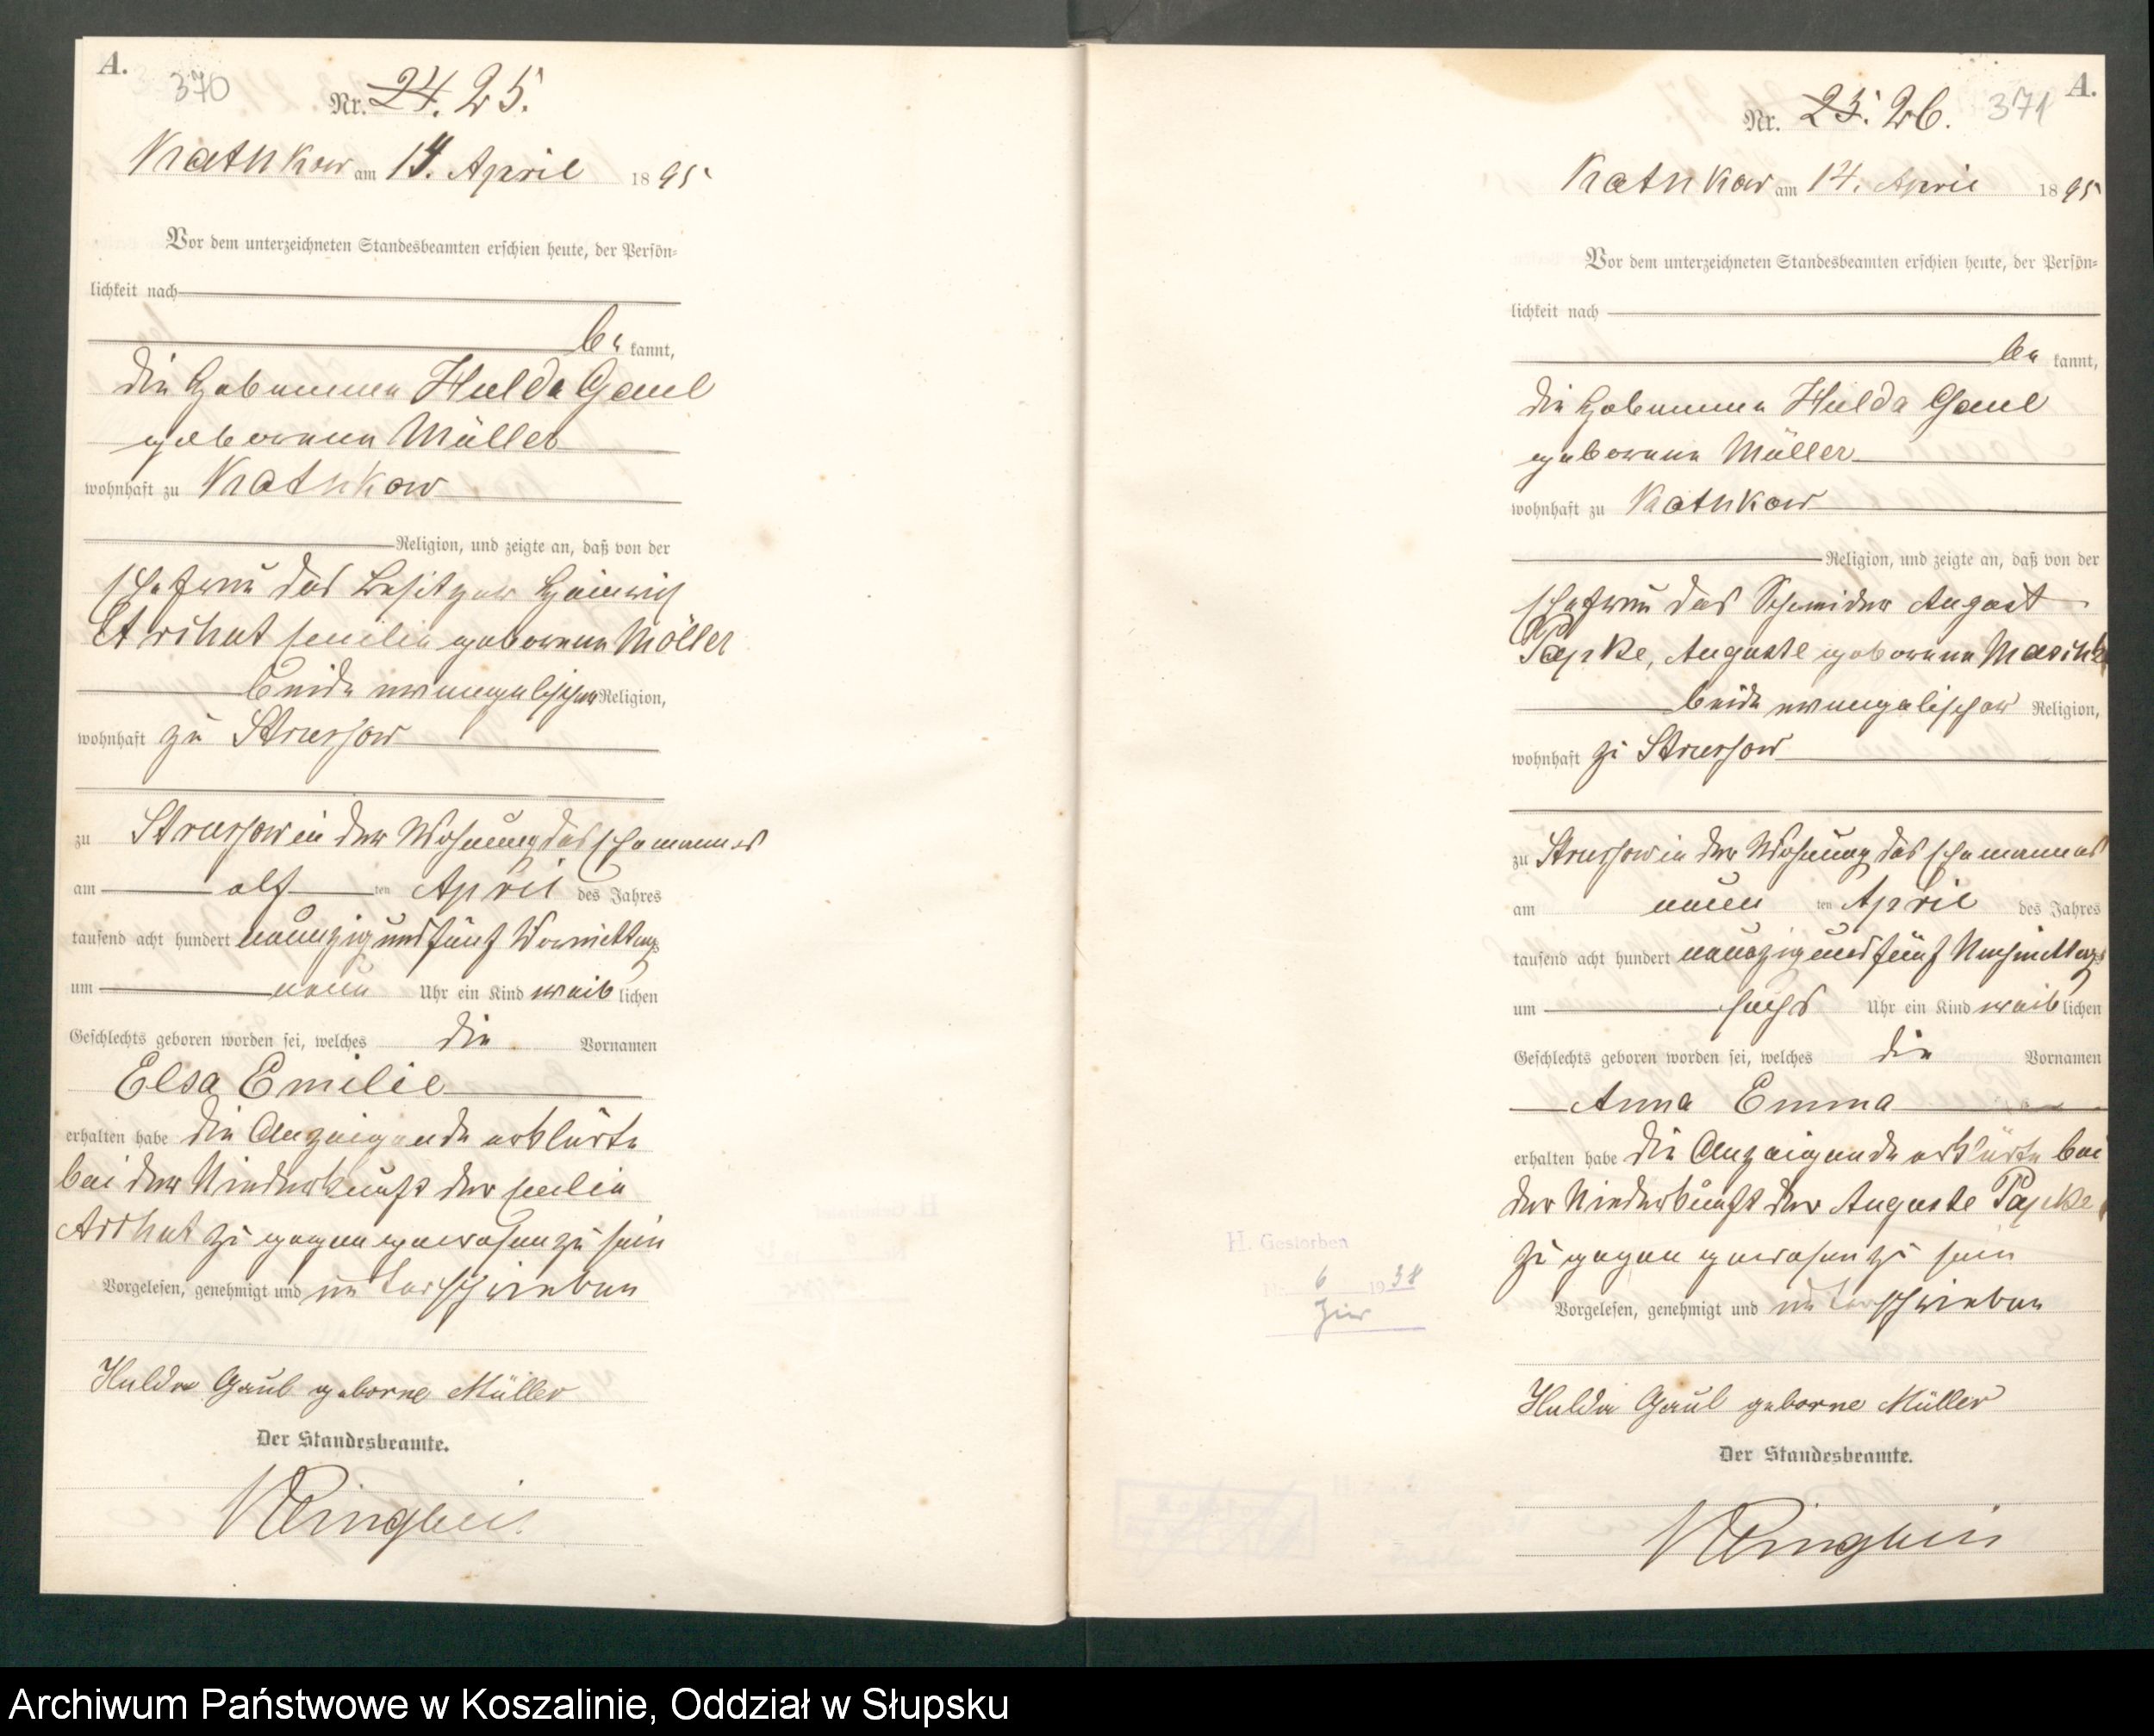 A.
370
Nr. 24. 25.
Kathkow am 14. April 1895
Vor dem unterzeichneten Standesbeamten erschien heute, der Persön-
lichkeit nach
be kannt,
die Hebamme Hulda Gaul
geborene Müller
wohnhaft zu Kathkow
Religion, und zeigte an, daß von der
Ehefrau des Besitzers Heinrich
geborene Möller
beide evangelischer Religion,
wohnhaft zu Strussow
zu Strussow in der Wohnung des Ehemannes
am elf ten April des Jahres
tausend acht hundert neunzig und fünf Vormittags
um neun Uhr ein Kind weib lichen
Geschlechts geboren worden sei, welches die Vornamen
Elsa Emilie
erhalten habe die Anzeigende erklärte
bei der Niederkunft der
zugegen gewesen zu sein
Vorgelesen, genehmigt und unterschrieben
Hulda Gaul geborne Müller
Der Standesbeamte.
A.
371
Nr. 25. 26.
Kathkow am 14. April 1895
Vor dem unterzeichneten Standesbeamten erschien heute, der Persön-
lichkeit nach
be kannt,
die Hebamme Hulda Gaul
geborene Müller
wohnhaft zu Kathkow
Religion, und zeigte an, daß von der
Ehefrau des Schneider August
Papke, Auguste geborene
beide evangelischer Religion,
wohnhaft zu Strussow
zu Strussow in der Wohnung des Ehemannes
am neun ten April des Jahres
tausend acht hundert neunzig und fünf Nachmittags
um sechs Uhr ein Kind weib lichen
Geschlechts geboren worden sei, welches die Vornamen
Anna Emma
erhalten habe die Anzeigende erklärte bei
der Niederkunft der Auguste Papke
zugegen gewesen zu sein
Vorgelesen, genehmigt und unterschrieben
Hulda Gaul geborne Müller
Der Standesbeamte.
H. Gestorben
Nr. 6 1938
Archiwum Państwowe w Koszalinie, Oddział w Słupsku